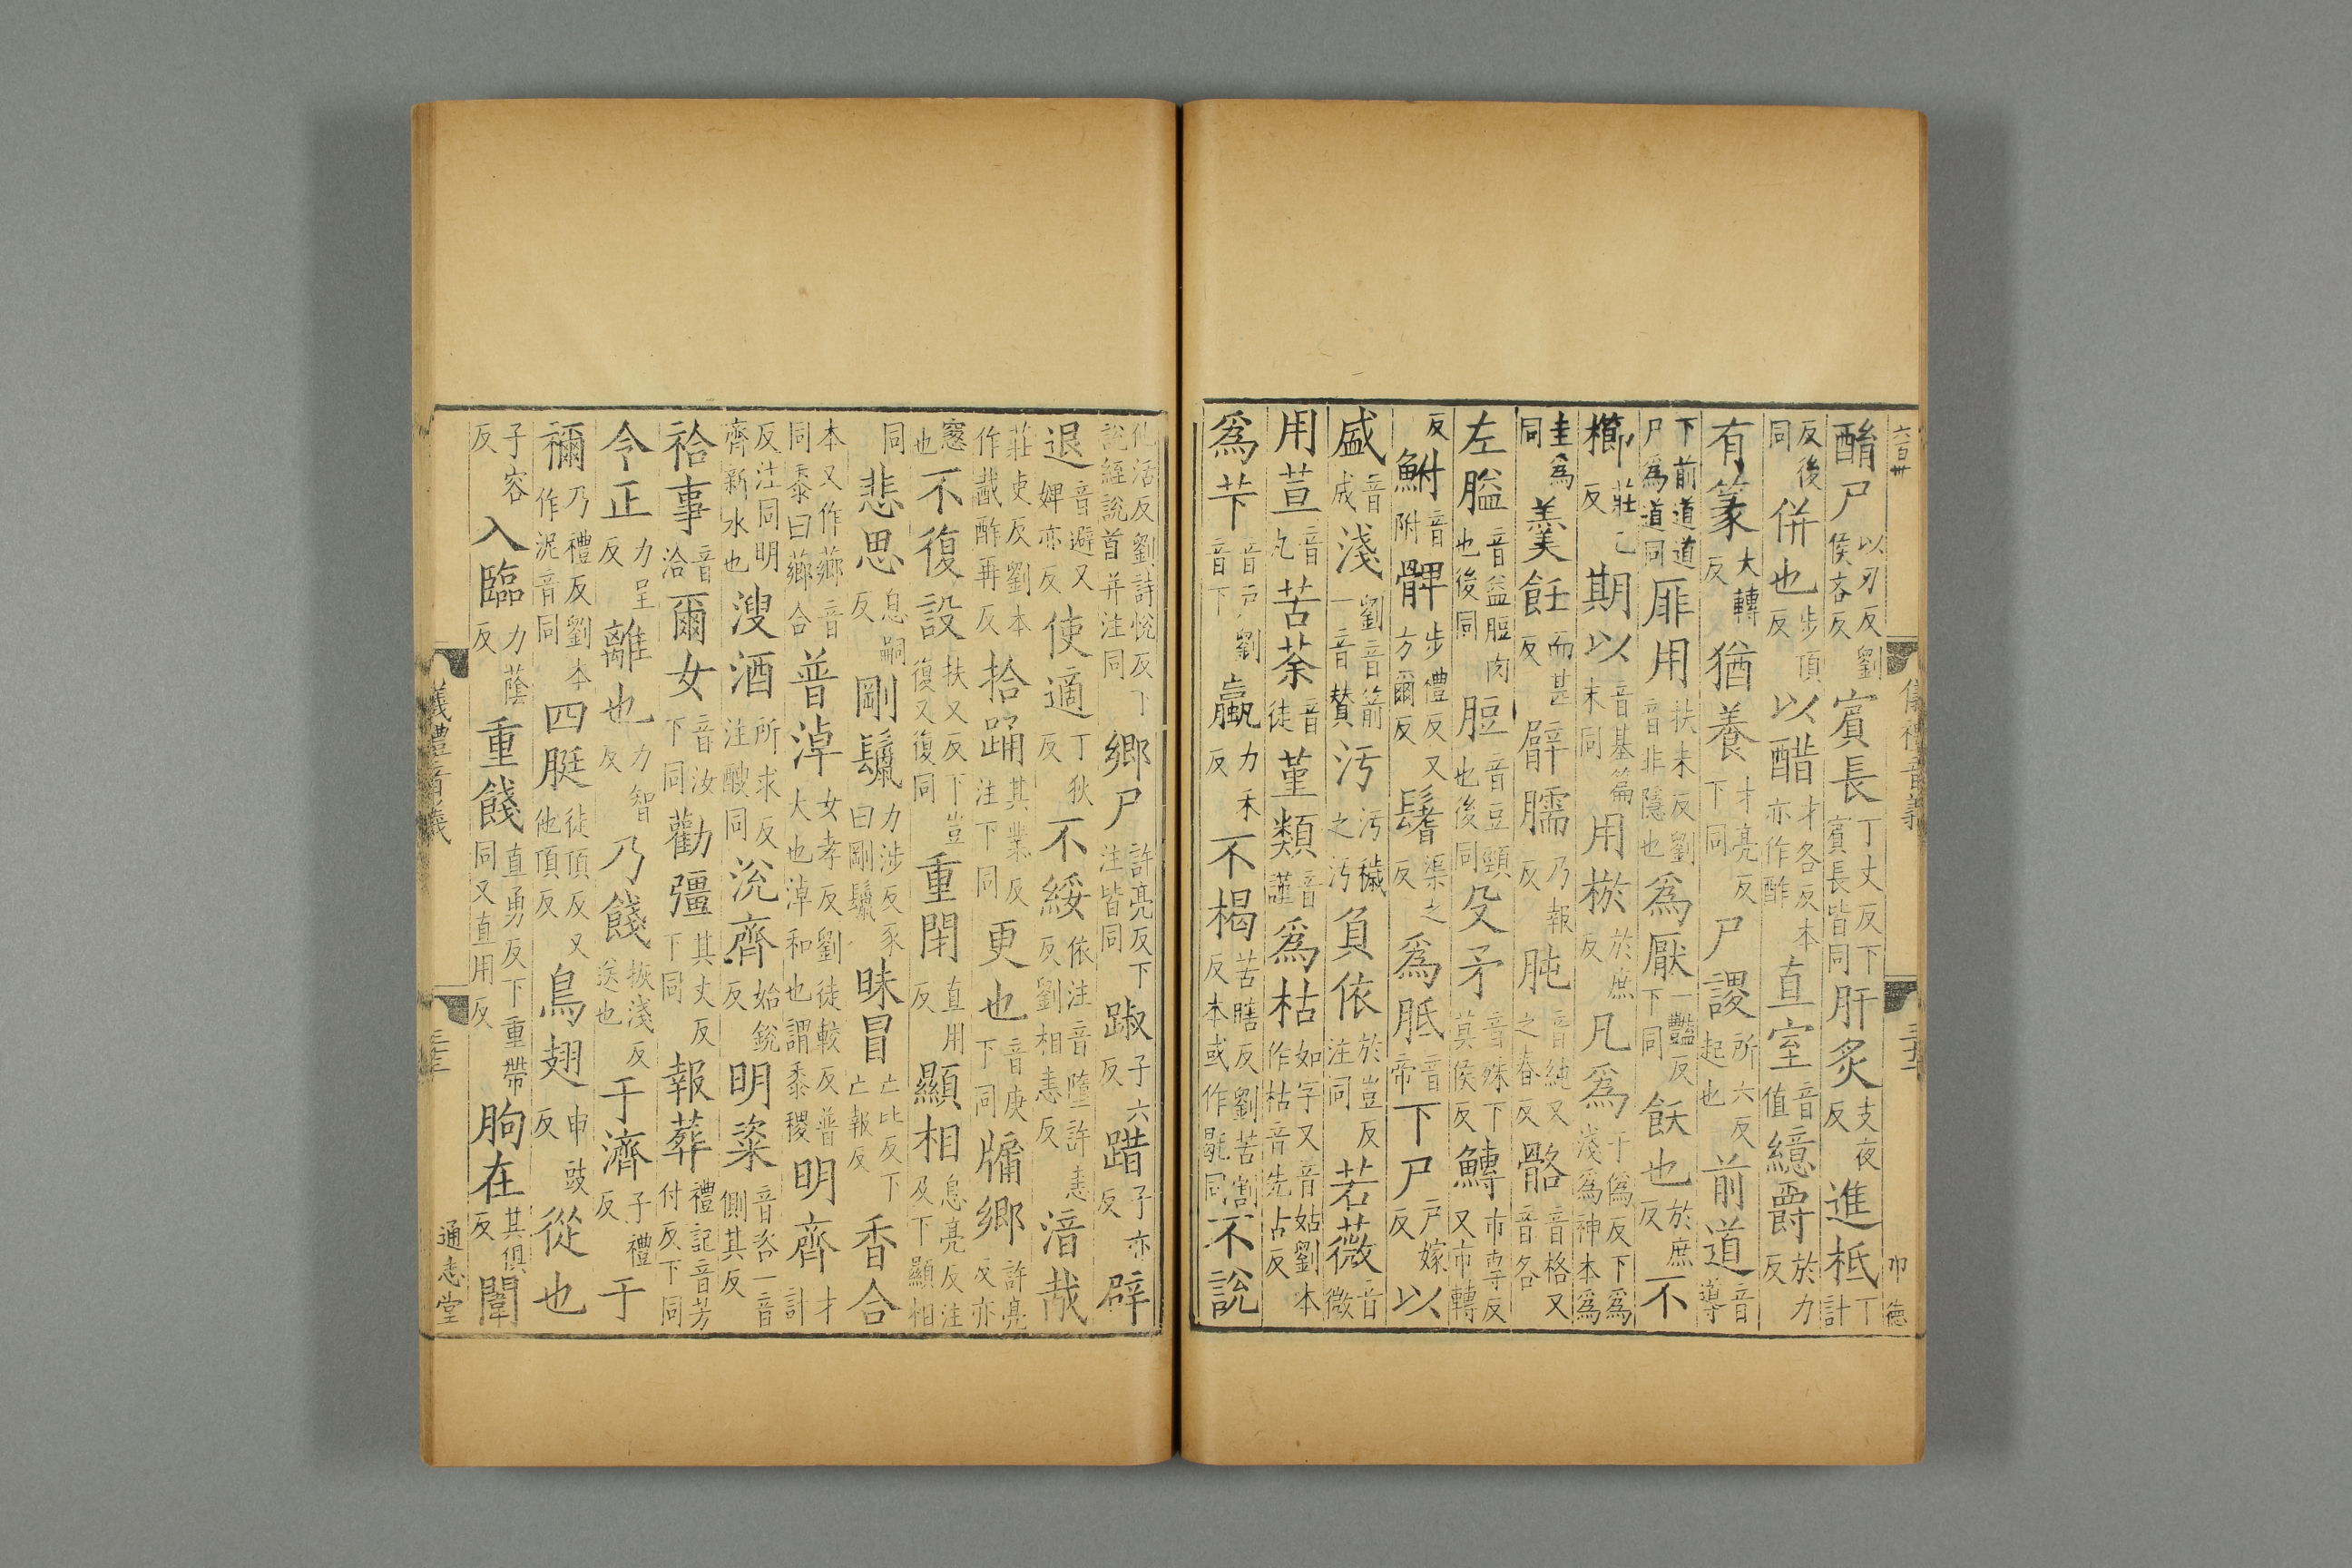 六百卅 儀禮音義 三十二 巾 德
酳尸以刃反劉侯吝反賓長丁丈反下賓長皆同肝炙支夜反進柢丁計
反後同併也步頂反以醋才各反本亦作酢直室音值繶爵於力反
有篆大轉反猶養才亮反下同尸謖所六反起也前道音導
下前道道尸為道同厞用扶未反劉音非隱也為厭一豔反下同飫也於庶反不
櫛莊乙反期以音基篇末同用棜於庶反凡為于偽反下為淺為神本為
圭為同羹飪而甚反臂臑乃報反肫音純又之春反骼音格又音各
左膉音益脰肉也後同脰音豆頸也後同殳矛音殊下莫侯反鱄市專反又市轉
反鮒音附髀步禮反又方爾反鬐渠之反為胝音帝下尸戶嫁反以
盛音成淺劉音箭一音贊汚汚穢之汚負依於豈反注同若薇音微
用荁音丸苦荼音徒堇類音謹為枯如字又音姑劉本作枯音先占反
為芐音戶劉音下蠃力禾反不楬苦瞎反劉苦割反本或作毼同不說
他活反劉詩悅反下說絰說首并注同鄉尸許亮反下注皆同踧子六反踖子亦反辟
退音避又婢亦反使適丁狄反不綏依注音墮許恚反劉相恚反湆哉
莊吏反劉本作韱酢再反拾踊其業反注下同更也音庚下同牖鄉許亮反亦
窻也不復設扶又反下豈復又復同重閉直用反顯相息亮反注及下顯相
同悲思息嗣反剛鬣力涉反豕曰剛鬣昧冒亡比反下亡報反香合
本又作薌音同黍曰薌合普淖女孝反劉徒較反普大也淖和也謂黍稷明齊才計
反注同明齊新水也溲酒所求反注醙同涗齊始銳反明粢音咨一音側其反
祫事音洽爾女音汝下同勸彊其丈反下同報葬禮記音芳付反下同
令正力呈反離也力智反乃餞慈淺反送也于濟子禮反于
禰乃禮反劉本作泥音同四脡徒頂反又他頂反鳥翅申豉反從也
子容反入臨力蔭反重餞直勇反下重帶同又直用反朐在其俱反闈
儀禮音義 三十二 通志堂